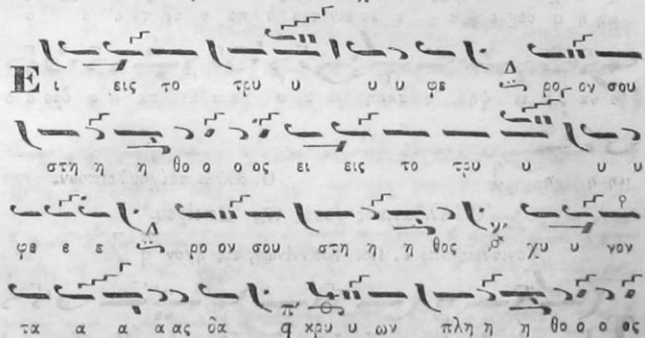 Ε εις το τρυ υ υ υ φε Δ ρο ον σου
στη η η θο ο ο ος ει εις το τρυ υ υ υ
φε ε ε Δ ρο ον σου στη η η θος χυ υ νον
τα α α α ας δα π q κρυ υ ων πλη η η θο ο ο ος